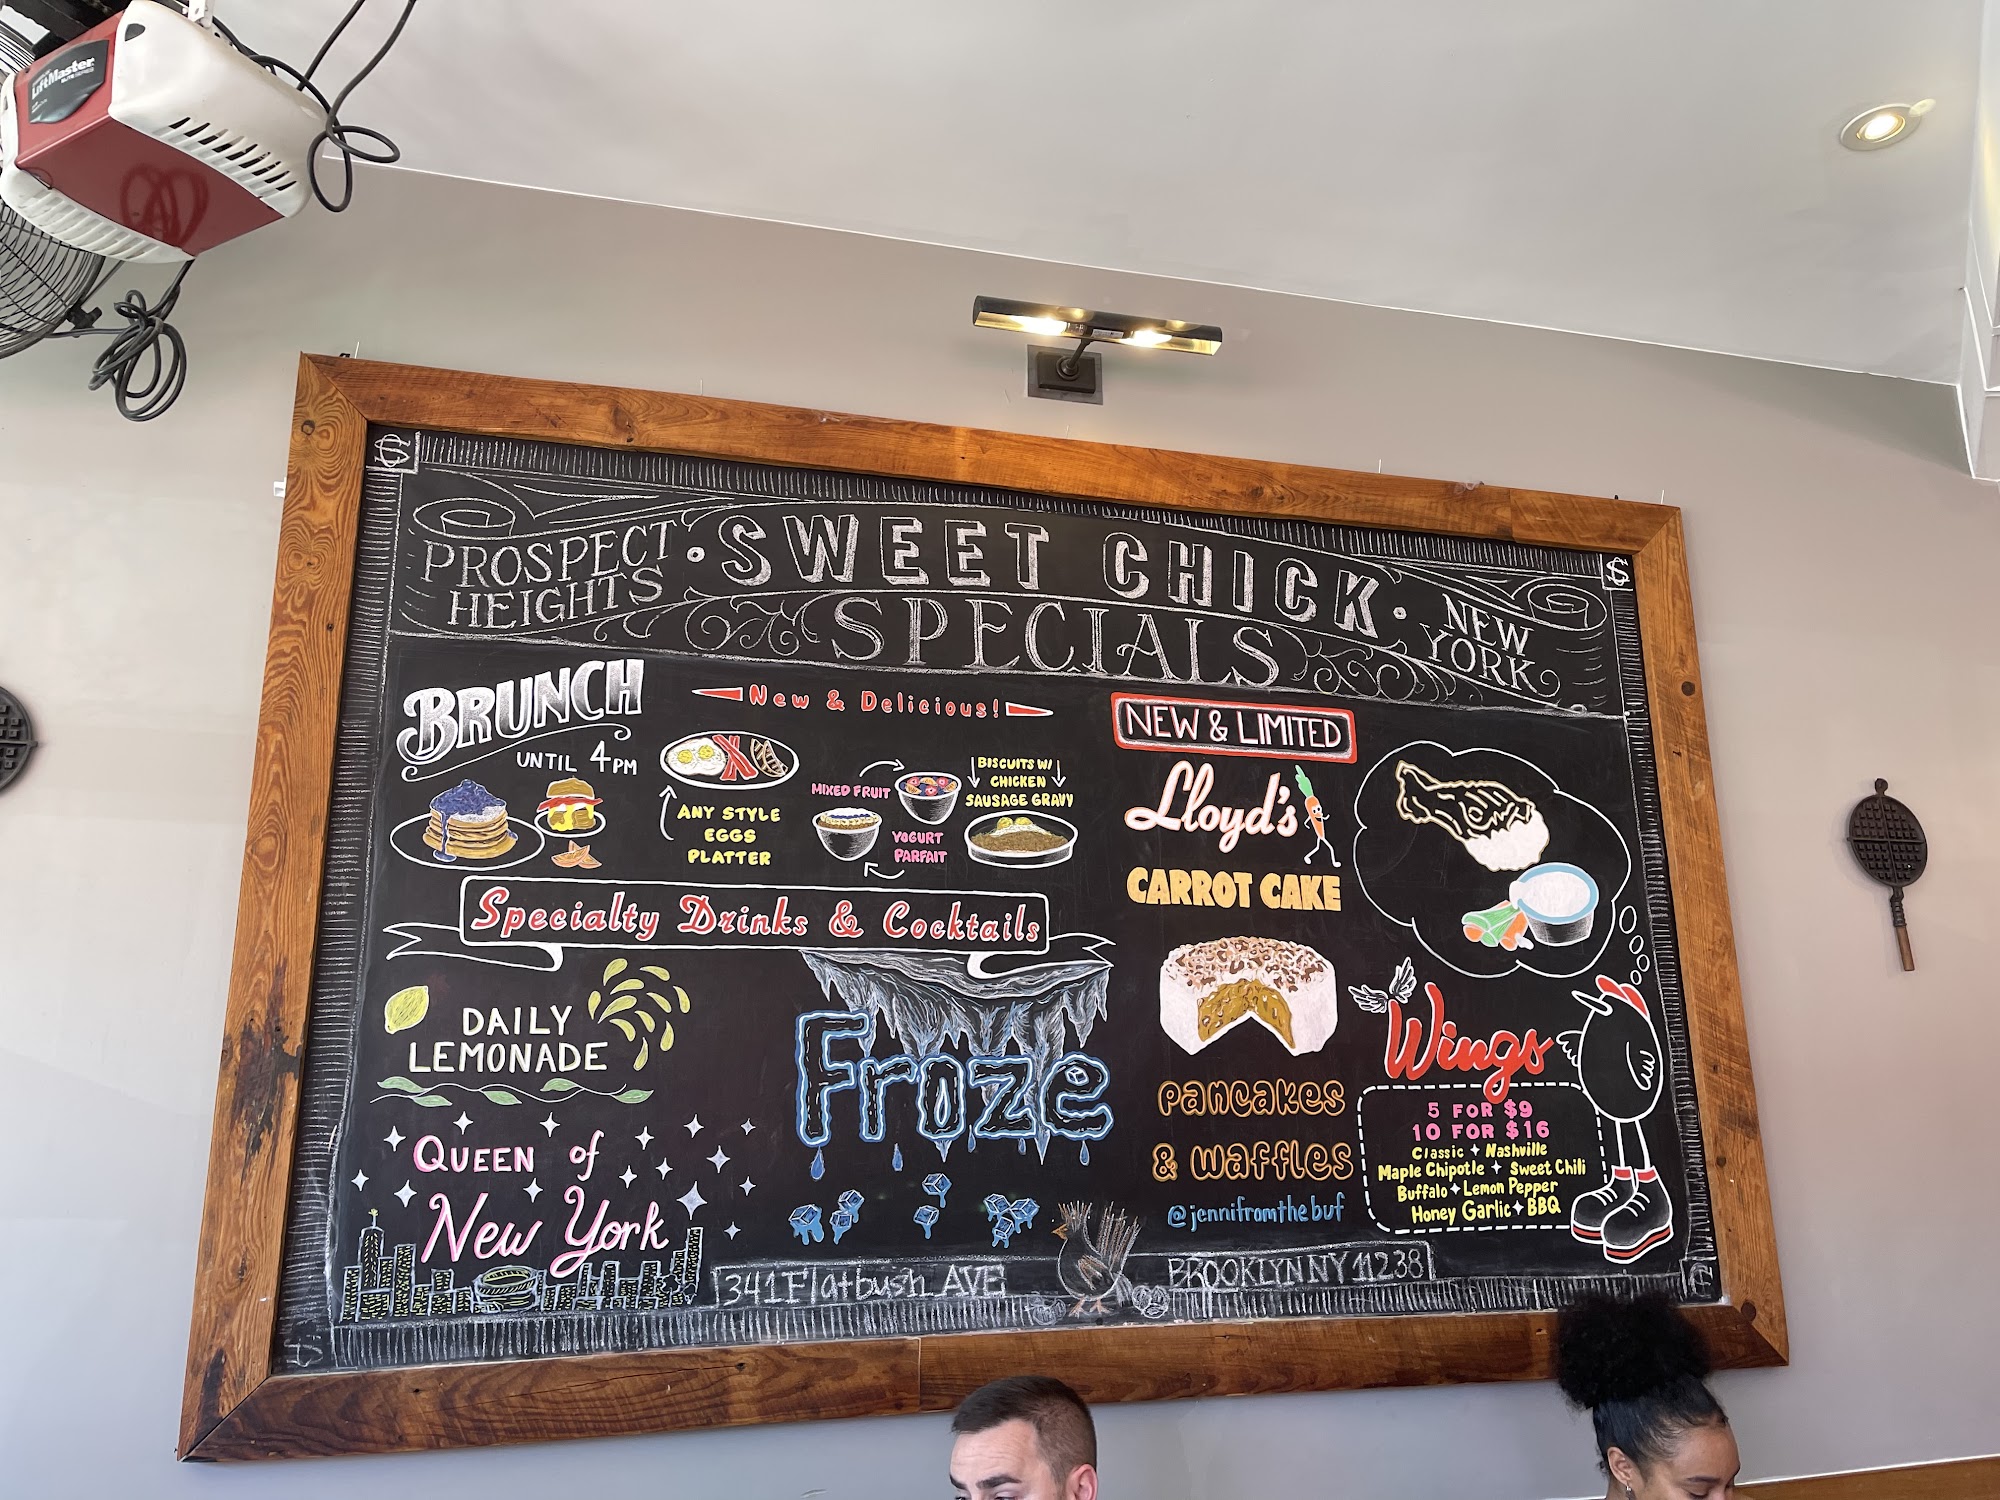 LiftMaster
ELITE SERIES
PROSPECT
HEIGHTS
· SWEET CHICK ·
SPECIALS
NEW
YORK
BRUNCH
UNTIL 4PM
New & Delicious!
ANY STYLE
EGGS
PLATTER
MIXED FRUIT
YOGURT
PARFAIT
BISCUITS W/
CHICKEN
SAUSAGE GRAVY
Specialty Drinks & Cocktails
DAILY
LEMONADE
QUEEN of
New York
Froze
NEW & LIMITED
Lloyd's
CARROT CAKE
PANCAKES
& WAFFLES
@jennifromthebuf
Wings
5 FOR $9
10 FOR $16
Classic ✦ Nashville
Maple Chipotle ✦ Sweet Chili
Buffalo ✦ Lemon Pepper
Honey Garlic ✦ BBQ
341 Flatbush AVE
BROOKLYN NY 11238